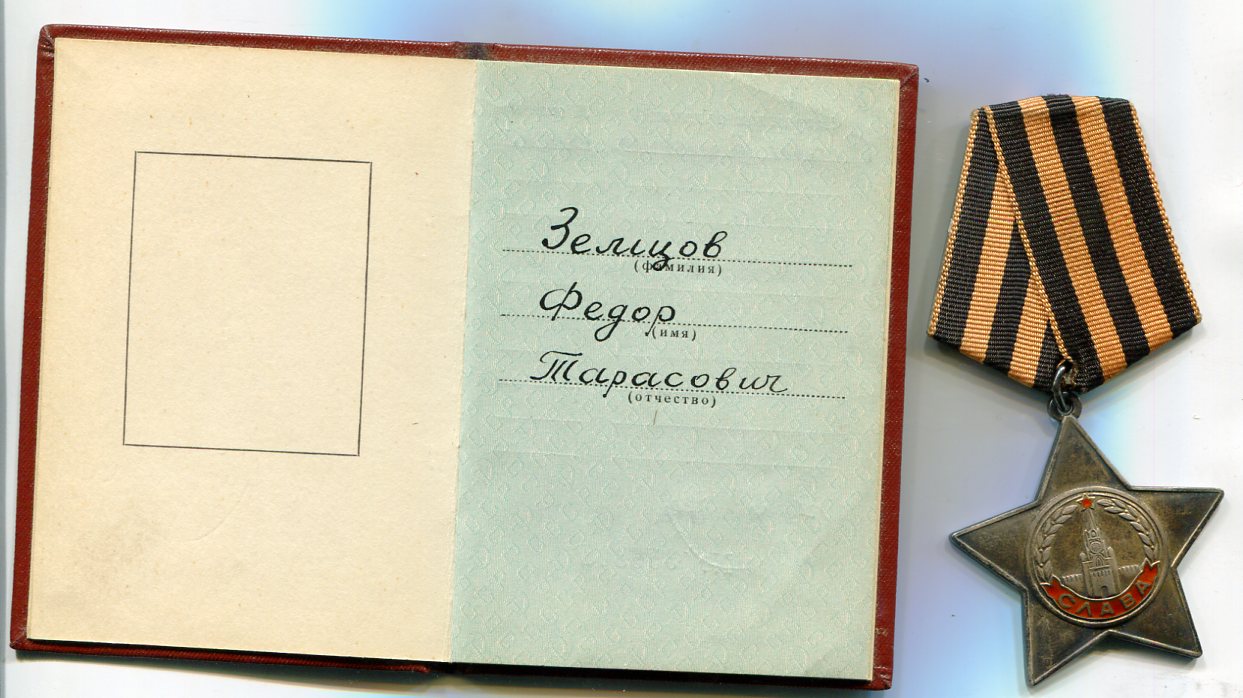 Земцов
(фамилия)
Федор
(имя)
Тарасович
(отчество)
СЛАВА